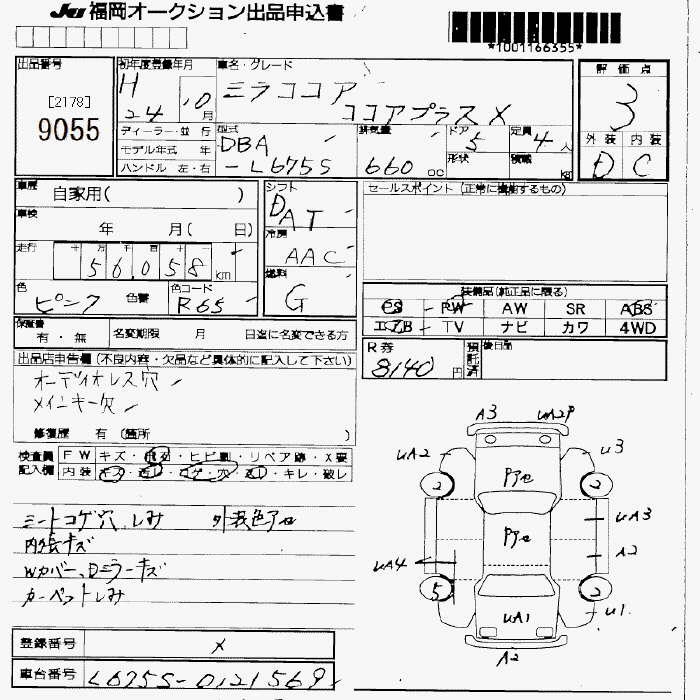 JU 福岡オークション出品申込書
*1001166355*
出品番号
[2178]
9055
初年度登録年月
H
24年 10月
ディーラー・並 行
モデル年式 年
ハンドル 左・右
車名・グレード
ミラココア
ココアプラス X
型式
DBA
-L675S
排気量
660 cc
ドア
5
形状
定員
4人
積載
kg
評価点
3
外装 内装
D C
車歴
自家用( )
車検
年 月( 日)
走行
十 万 千 百 十 一
56,058 km
シフト
DAT
冷房
AAC
燃料
G
セールスポイント (正常に機能するもの)
色
ピンク
色替
色コード
R65
装備品(純正品に限る)
PS PW AW SR ABS
エアB TV ナビ カワ 4WD
保証書
有・無
名変期限 月 日迄に名変できる方
R券
8140円
預託済
後日品
出品店申告欄 (不良内容・欠品など具体的に記入して下さい)
オーディオレス穴
メインキー欠
修復歴 有 (箇所 )
検査員
記入欄
FW キズ・飛石・ヒビ割・リペア跡・X要
内装 キズ・汚レ・コゲ・穴・凹レ・キレ・破レ
シートコゲ穴、しみ 外装色アセ
内外キズ
Wカバー、Dミラーキズ
カーペットしみ
A3 UA2P
UA2 U3
アセ
2 2
アセ
UA3
A2
UA4
5 2
UA1 U1
A2
登録番号
X
車台番号
L675S-0121569